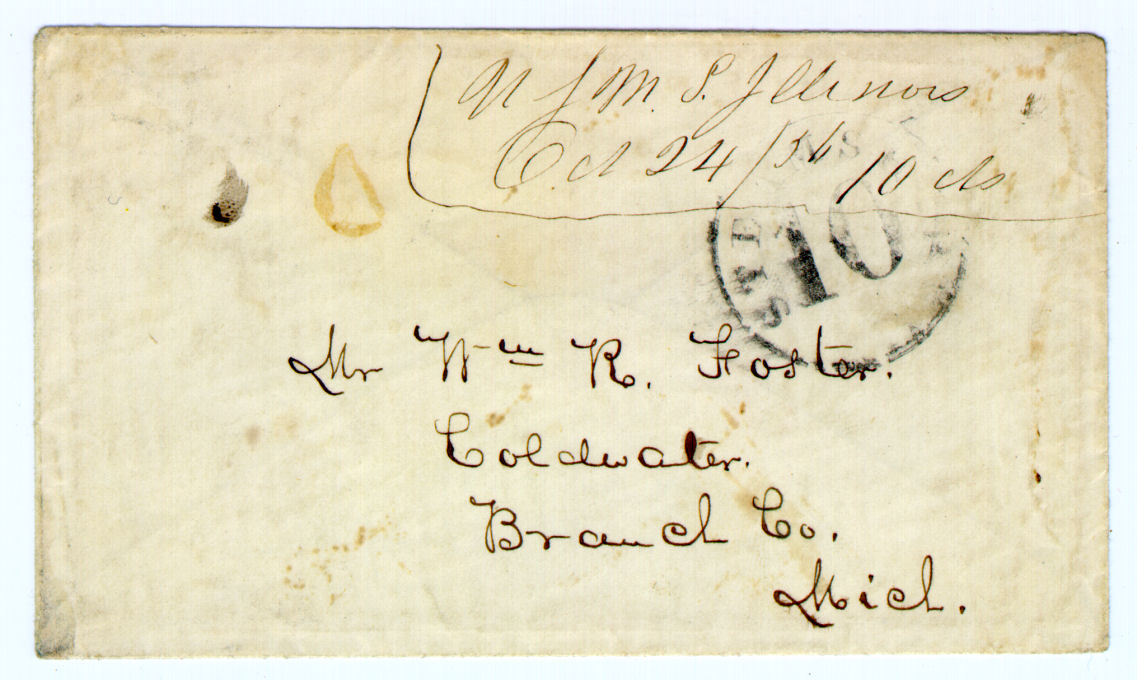 N J M S. Illinois
Oct 24/56 10 cts
STEAMSHIP
10
Mr Wm R. Foster.
Coldwater.
Branch Co.
Mich.